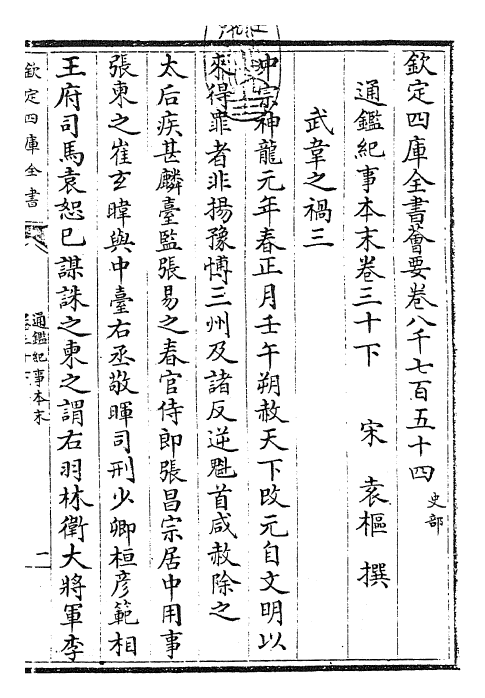 欽定四庫全書薈要卷八千七百五十四 史部
通鑑紀事本末卷三十下 宋 袁樞 撰
武韋之禍三
中宗神龍元年春正月壬午朔赦天下改元自文明以
來得罪者非揚豫博三州及諸反逆魁首咸赦除之
太后疾甚麟臺監張易之春官侍郎張昌宗居中用事
張柬之崔玄暐與中臺右丞敬暉司刑少卿桓彦範相
王府司馬袁恕已謀誅之柬之謂右羽林衛大將軍李
欽定四庫全書
通鑑紀事本末
卷三十下
一